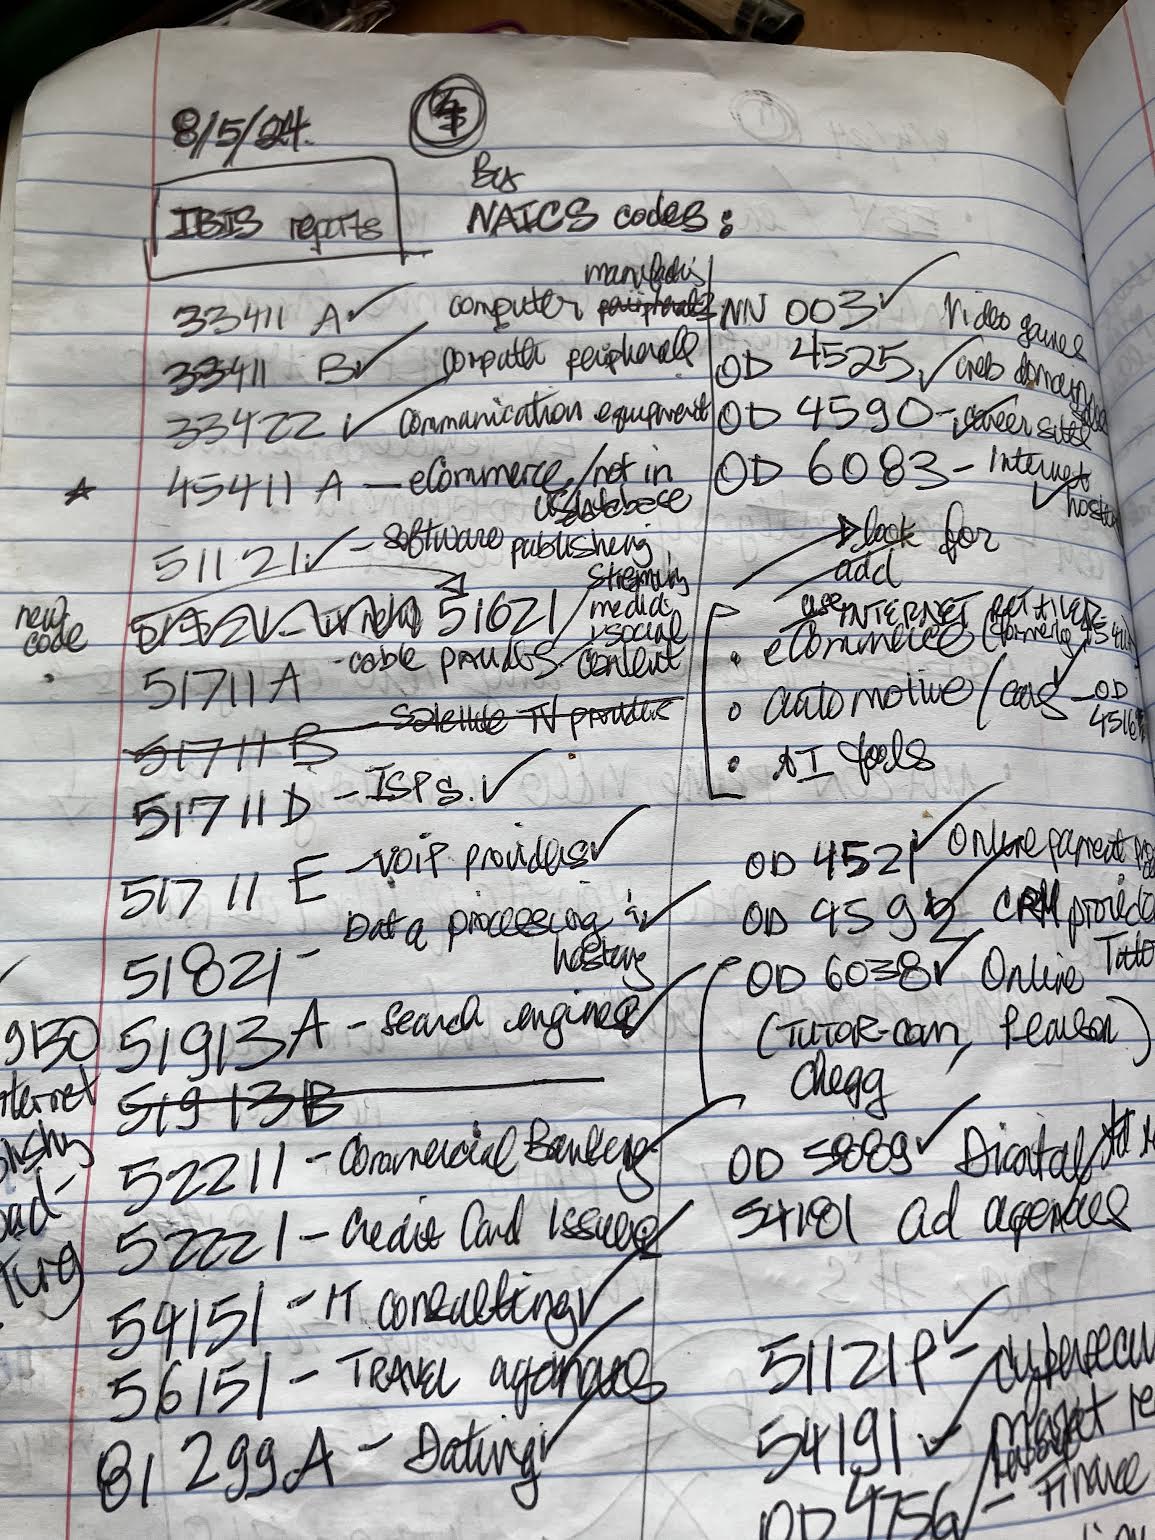 8/5/24.
By
IBIS reports
NAICS codes:
33411 A ✓ computer
33411 B ✓ computer peripherals
33422 ✓ communication equipment
45411 A — eCommerce/not in
US database
51121 ✓ - software publishing
new
code
51621 / streaming
media
social
content
51711 A - cable providers
51711 B - Satellite TV providers
51711 D - ISPs. ✓
51711 E - VOIP providers ✓
51821 - Data processing & ✓
hosting
51913 A - search engines ✓
51913 B
52211 - Commercial Banking
52221 - Credit Card Issuers
54151 - IT consulting ✓
56151 - TRAVEL agencies
81 299 A - Dating ✓
NN 003 ✓ Video games
OD 4525 ✓ web domain
OD 4590 - career sites
OD 6083 - Internet
✓ hosting
look for
add
use INTERNET RETAILERS
• eCommerce (formerly
• automotive/cars - OD
4516
• AI tools
OD 4521 ✓ Online payment
OD 4592 CRM
OD 6038 ✓ Online
(TUTOR.com, Pearson)
Chegg
OD 5889 ✓ Digital Ad
54181 ad agencies
51121P -
54191 ✓ - Market
OD 4756 - Finance